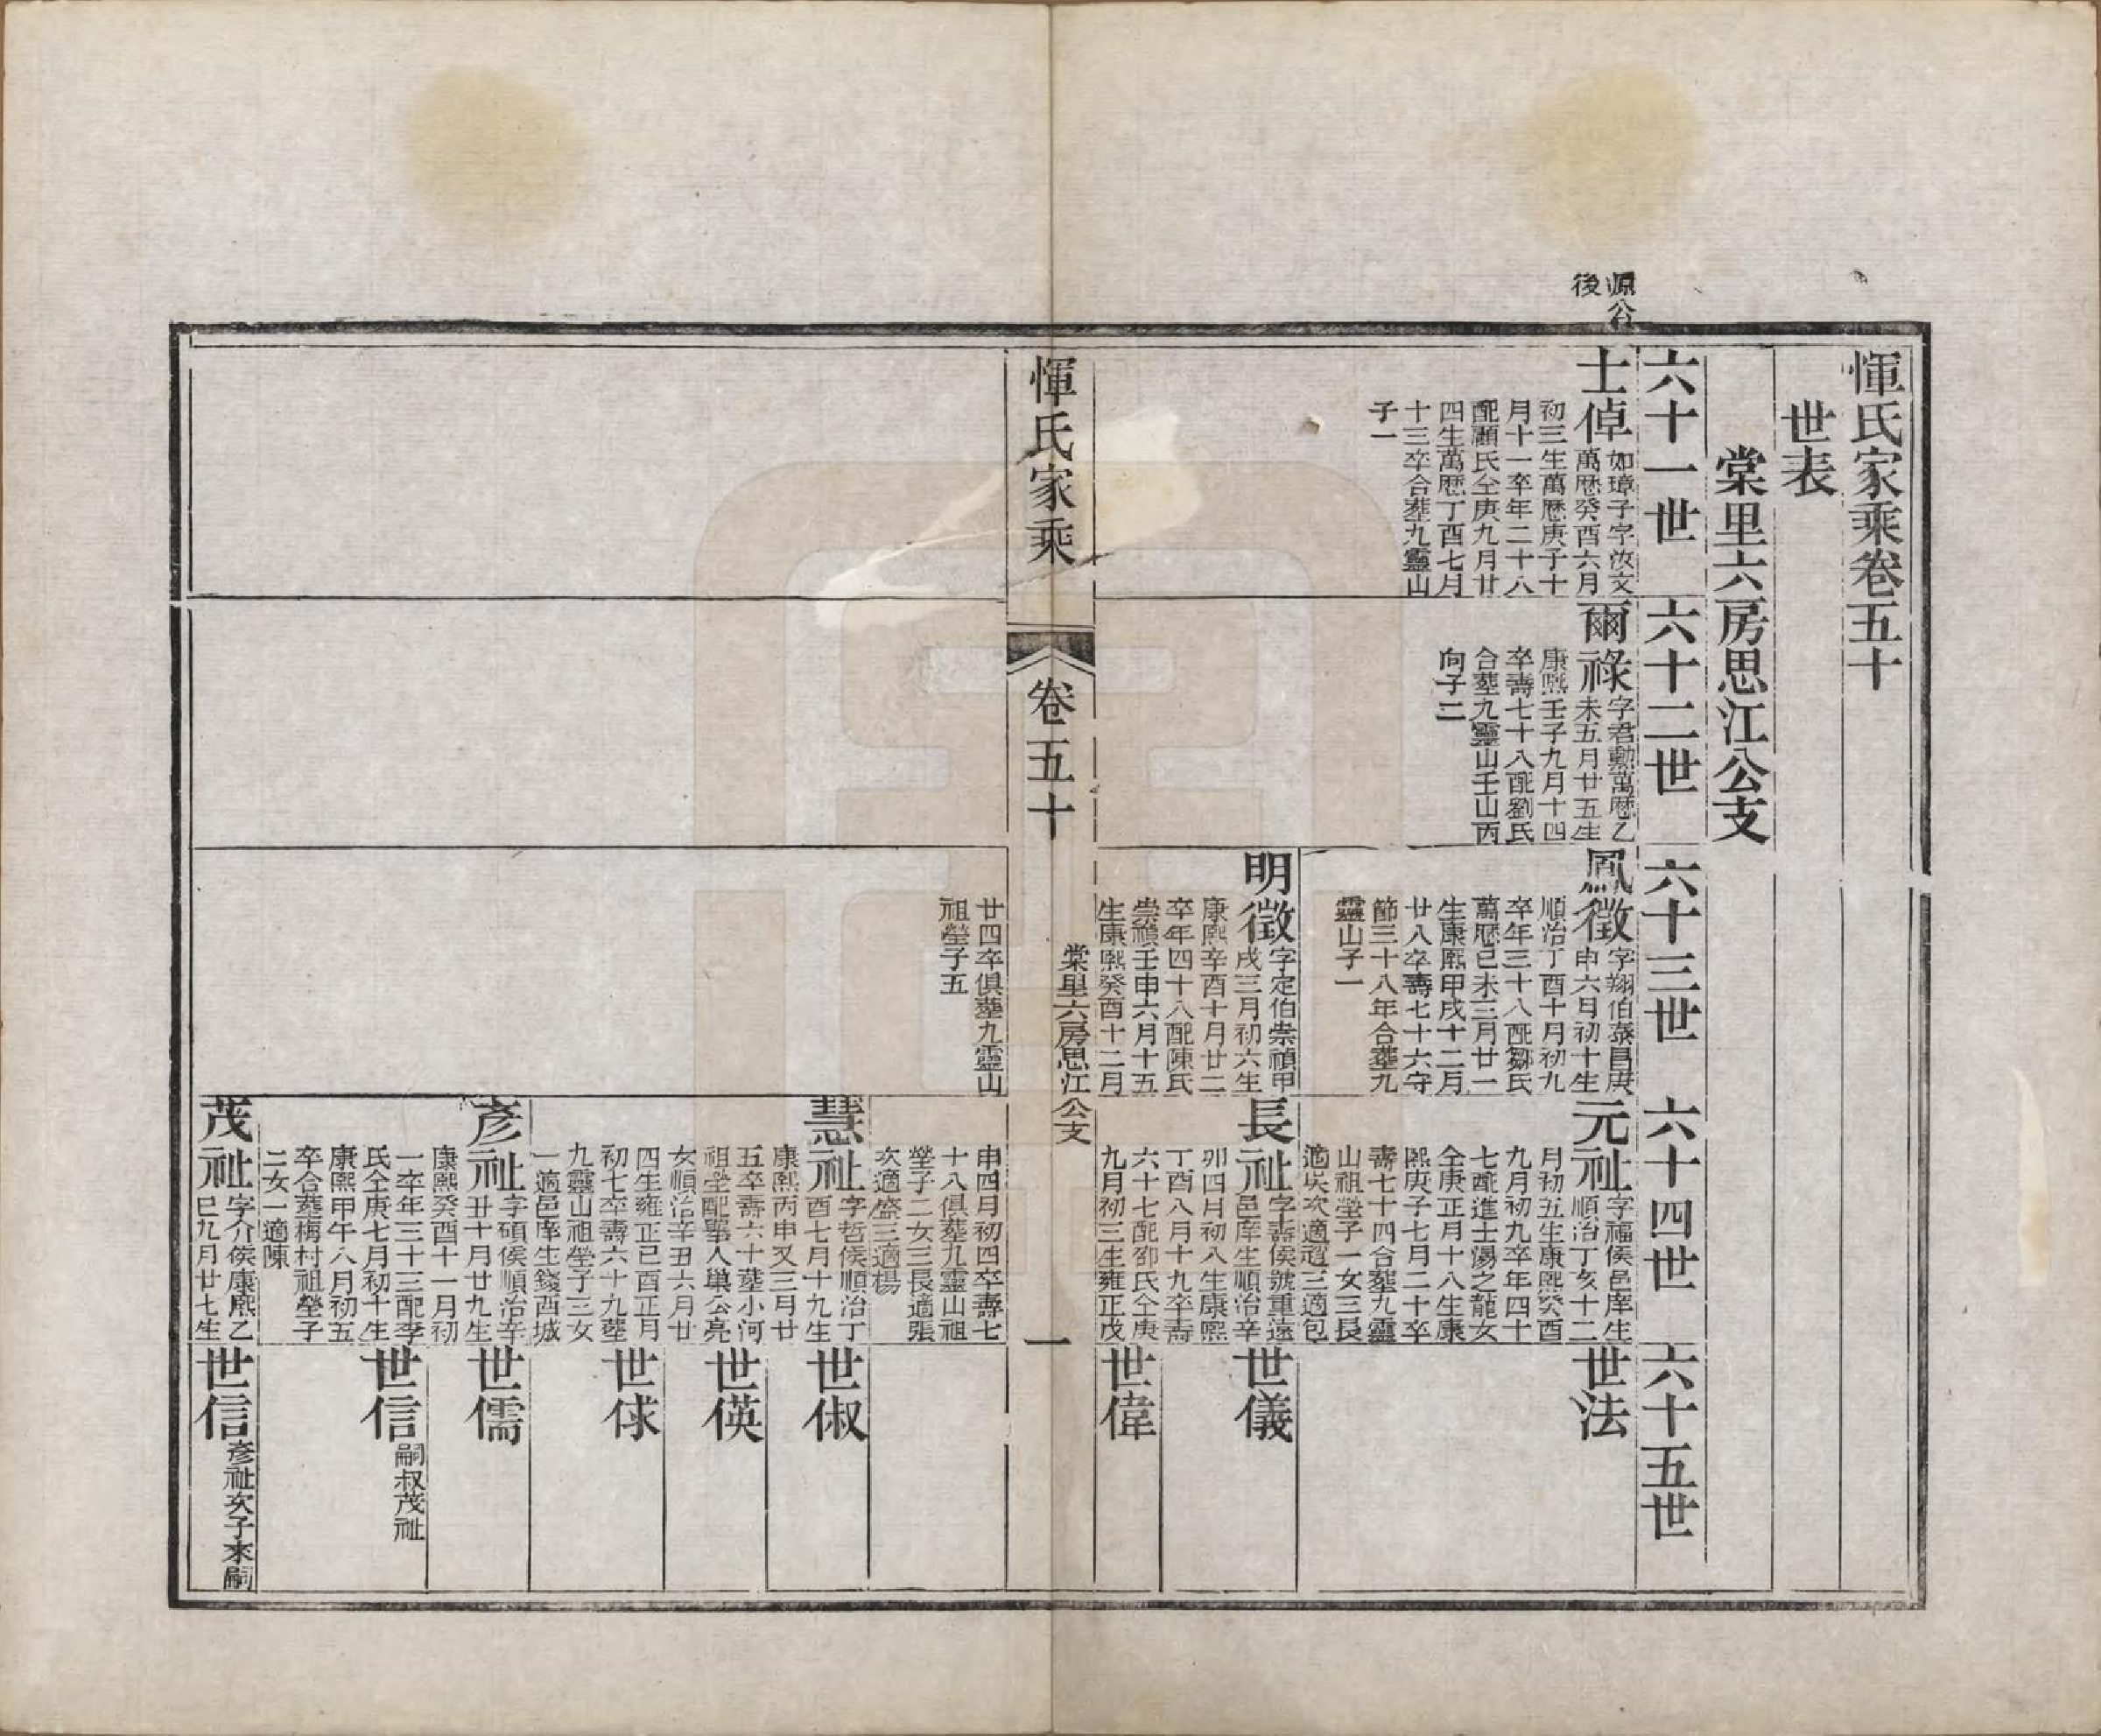 惲氏家乘卷五十
世表
棠里六房思江公支
六十一世
六十二世
六十三世
六十四世
六十五世
源公
後
士倬
如璋子字汝文
萬厯癸酉六月
初三生萬厯庚子十
月十一卒年二十八
配顧氏仝庚九月廿
四生萬厯丁酉七月
十三卒合塟九靈山
子一
爾祿
字君勳萬厯乙
未五月廿五生
康熙壬子九月十四
卒壽七十八配劉氏
合塟九靈山壬山丙
向子二
鳳徵
字翔伯泰昌庚
申六月初十生
順治丁酉十月初九
卒年三十八配鄒氏
萬厯己未三月廿一
生康熙甲戌十二月
廿八卒壽七十六守
節三十八年合塟九
靈山子一
明徵
字定伯崇禎甲
戌三月初六生
康熙辛酉十月廿二
卒年四十八配陳氏
崇禎壬申六月十五
生康熙癸酉十二月
元祉
字福侯邑庠生
順治丁亥十二
月初五生康熙癸酉
九月初九卒年四十
七配進士湯之龍女
仝庚正月十八生康
熙庚子七月二十卒
壽七十四合塟九靈
山祖塋子一女三長
適吳次適趙三適包
長祉
字壽侯號重遠
邑庠生順治辛
卯四月初八生康熙
丁酉八月十九卒壽
六十七配邵氏仝庚
九月初三生雍正戊
世法
世儀
世偉
惲氏家乘
卷五十
棠里六房思江公支
一
廿四卒俱塟九靈山
祖塋子五
申四月初四卒壽七
十八俱塟九靈山祖
塋子二女三長適張
次適盛三適楊
慧祉
字哲侯順治丁
酉七月十九生
康熙丙申又三月廿
五卒壽六十塟小河
祖塋配舉人巢公亮
女順治辛丑六月廿
四生雍正己酉正月
初七卒壽六十九塟
九靈山祖塋子三女
一適邑庠生錢西城
彥祉
字碩侯順治辛
丑十月廿九生
康熙癸酉十一月初
一卒年三十三配李
氏仝庚七月初十生
康熙甲午八月初五
卒合塟梅村祖塋子
二女一適陳
茂祉
字介侯康熙乙
巳九月廿七生
世俶
世偀
世俅
世儒
世信
嗣叔茂祉
世信
彥祉次子來嗣